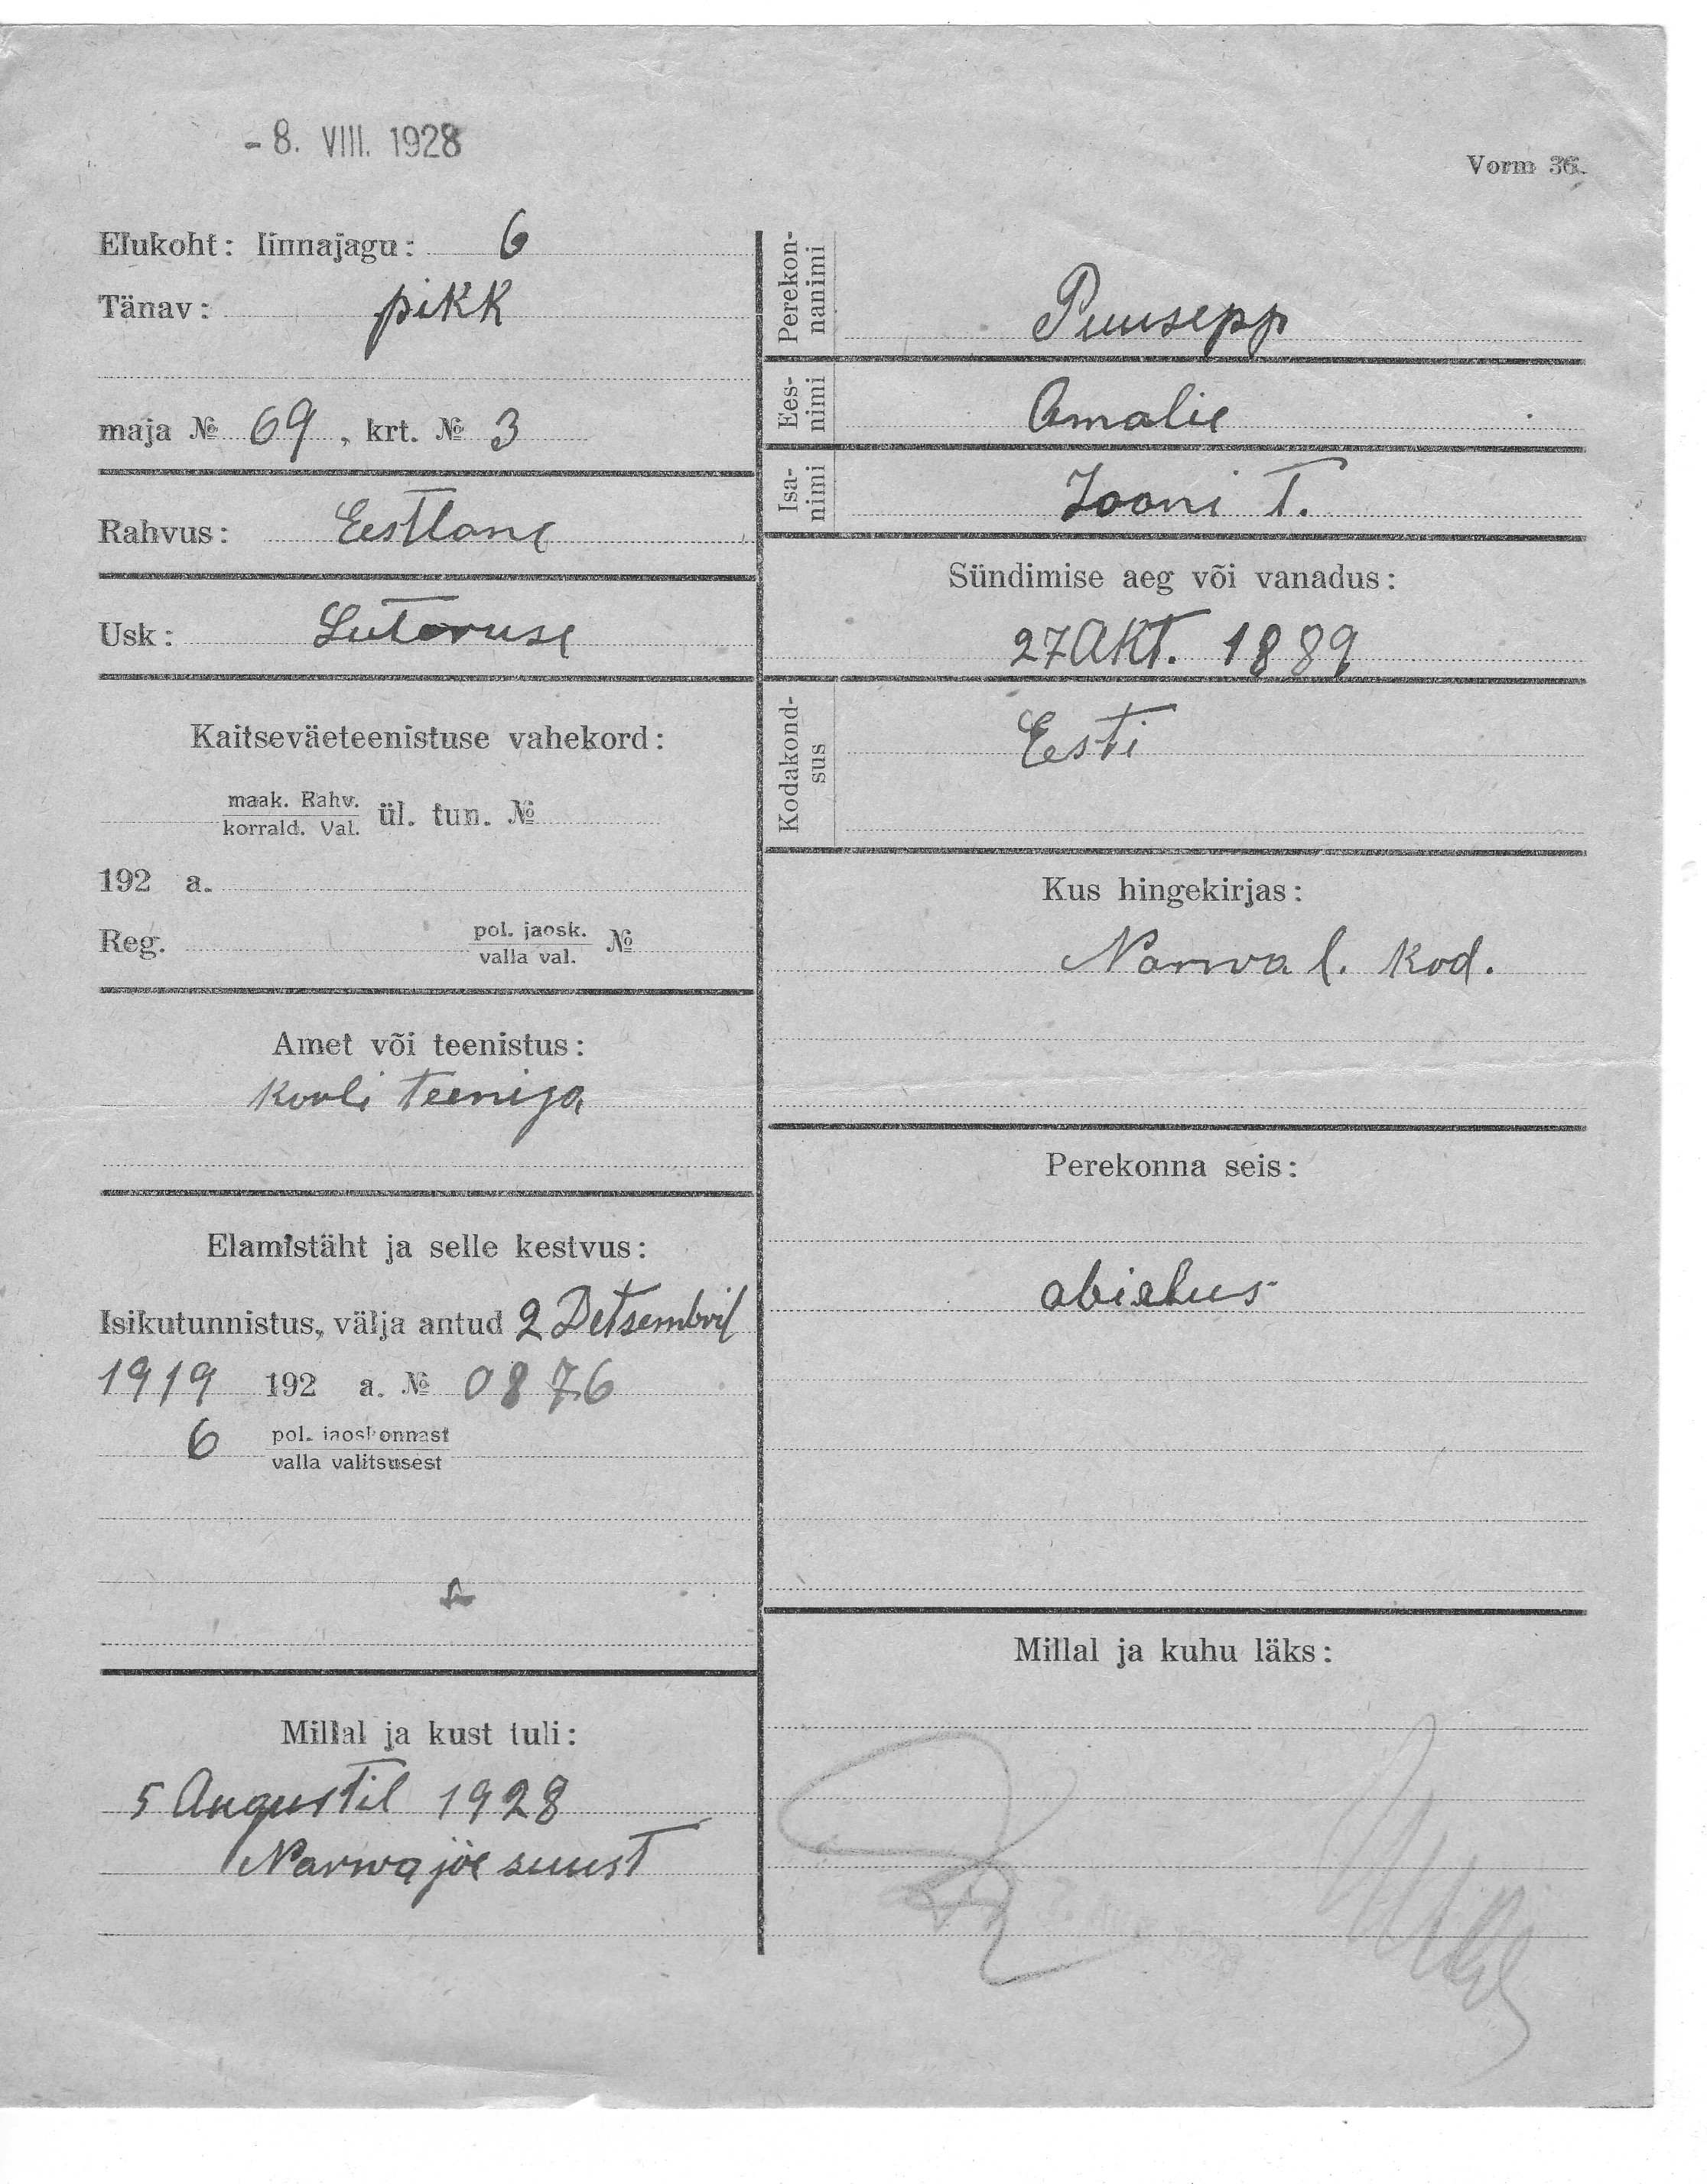 - 8. VIII. 1928
Vorm 36.
Elukoht: linnajagu: 6
Tänav: pikk
maja № 69, krt. № 3
Rahvus: Eestlane
Usk: Luteruse
Kaitseväeteenistuse vahekord:
maak. Rahv.
korrald. Val. ül. tun. №
192 a.
Reg. pol. jaosk. №
valla val.
Amet või teenistus:
Kooli teenija
Elamistäht ja selle kestvus:
Isikutunnistus, välja antud 2 Detsembril
1919 192 a. № 0876
6 pol. jaoskonnast
valla valitsusest
Millal ja kust tuli:
5 Augustil 1928
Narwa jõe suust
Perekon-
nanimi
Puusepp
Ees-
nimi
Amalie
Isa-
nimi
Jaani T.
Sündimise aeg või vanadus:
27 OKT. 1889
Kodakond-
sus
Eesti
Kus hingekirjas:
Narwa l. Kod.
Perekonna seis:
abielus
Millal ja kuhu läks: